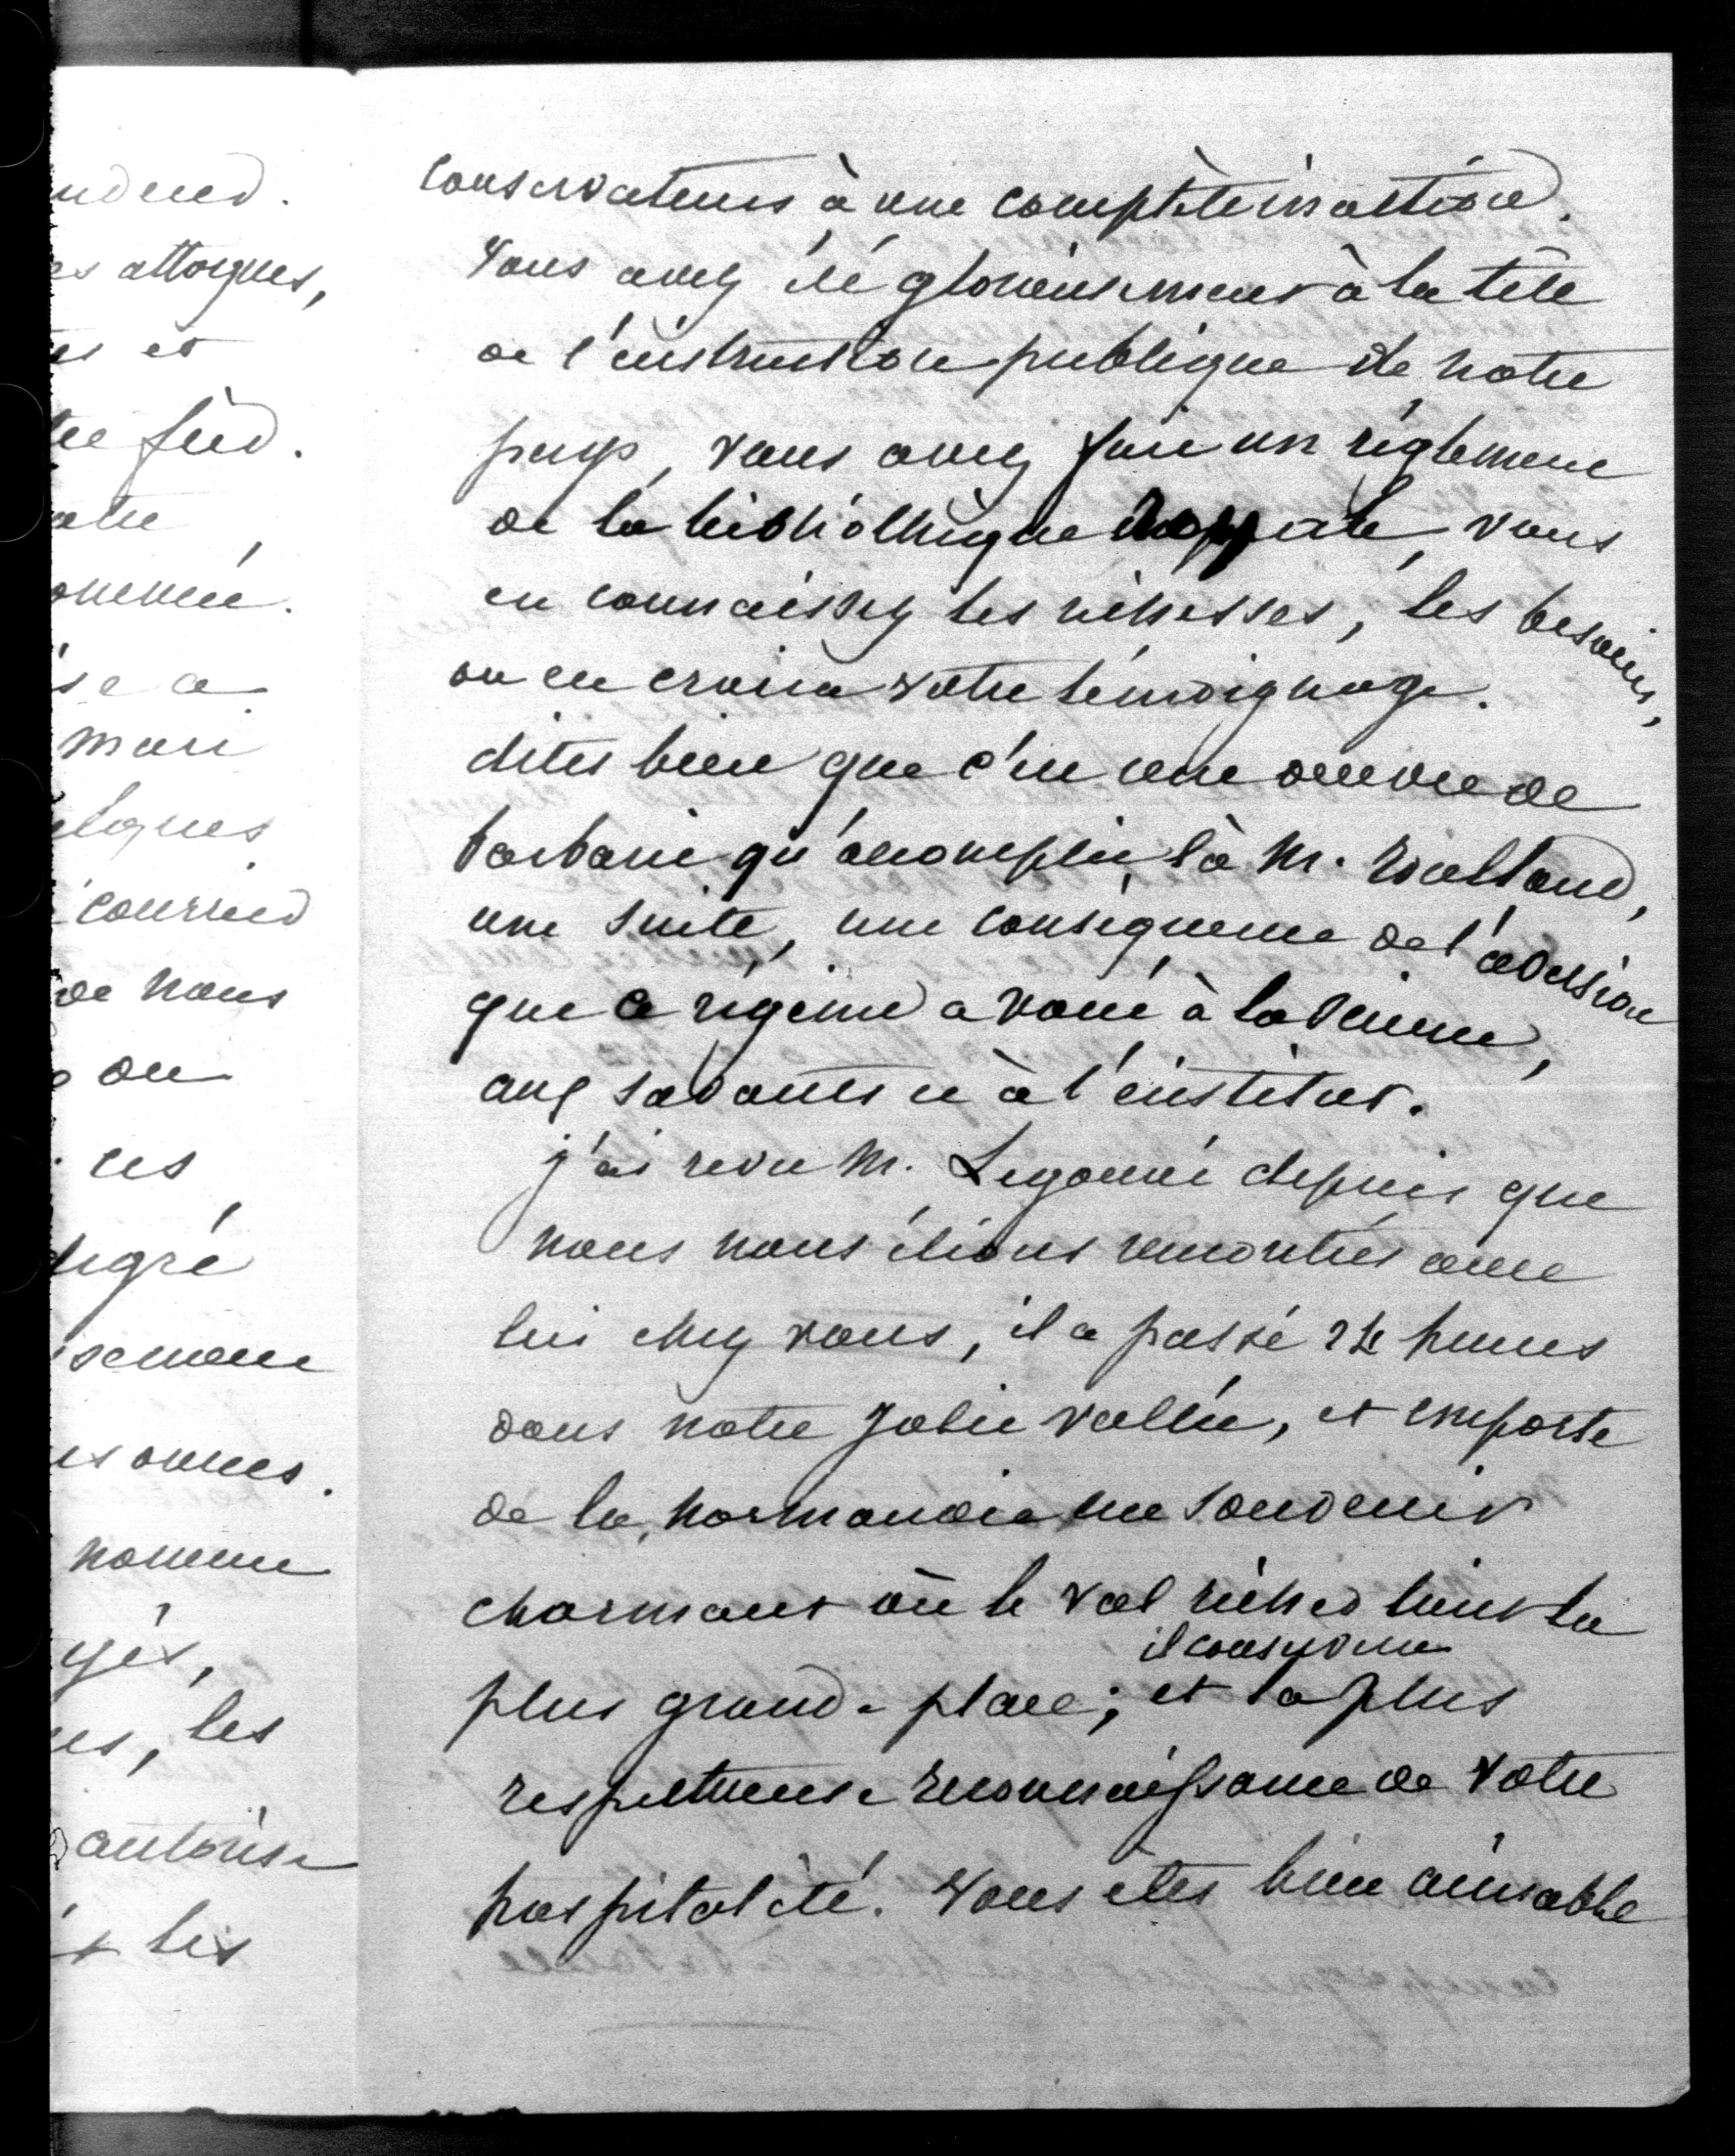 ndeud.
es attaques,
es et
tre fied.
atre
ommée.
ise a
mari
elques
courried
de nous
on
ces
degré
isemene
es onnes.
nomme
gés,
es, les
autorise
t les
conservateurs à une complète inaction.
Vous avez été glorieusement à la tête
de l'instruction publique de notre
pays, vous avez fait un règlement
de la bibliothèque vous
en connaissez les richesses, les besoins,
on en croira votre témoignage.
dites bien que c'est une oeuvre de
barbarie qu'accomplit là M. Roulland,
une suite, une conséquence de l'aversion
que ce régime a voué à la science,
aux savants et à l'institut.
j'ai revu M. Legouvé depuis que
nous nous étions rencontrés avec
lui chez vous, il a passé 24 heures
dans notre jolie vallée, et emporte
de la normandie un souvenir
charmant où le val richer tient la
plus grande place; il conserve
et la plus
respectueuse reconnaissance de votre
hospitalité. Vous êtes bien aimable